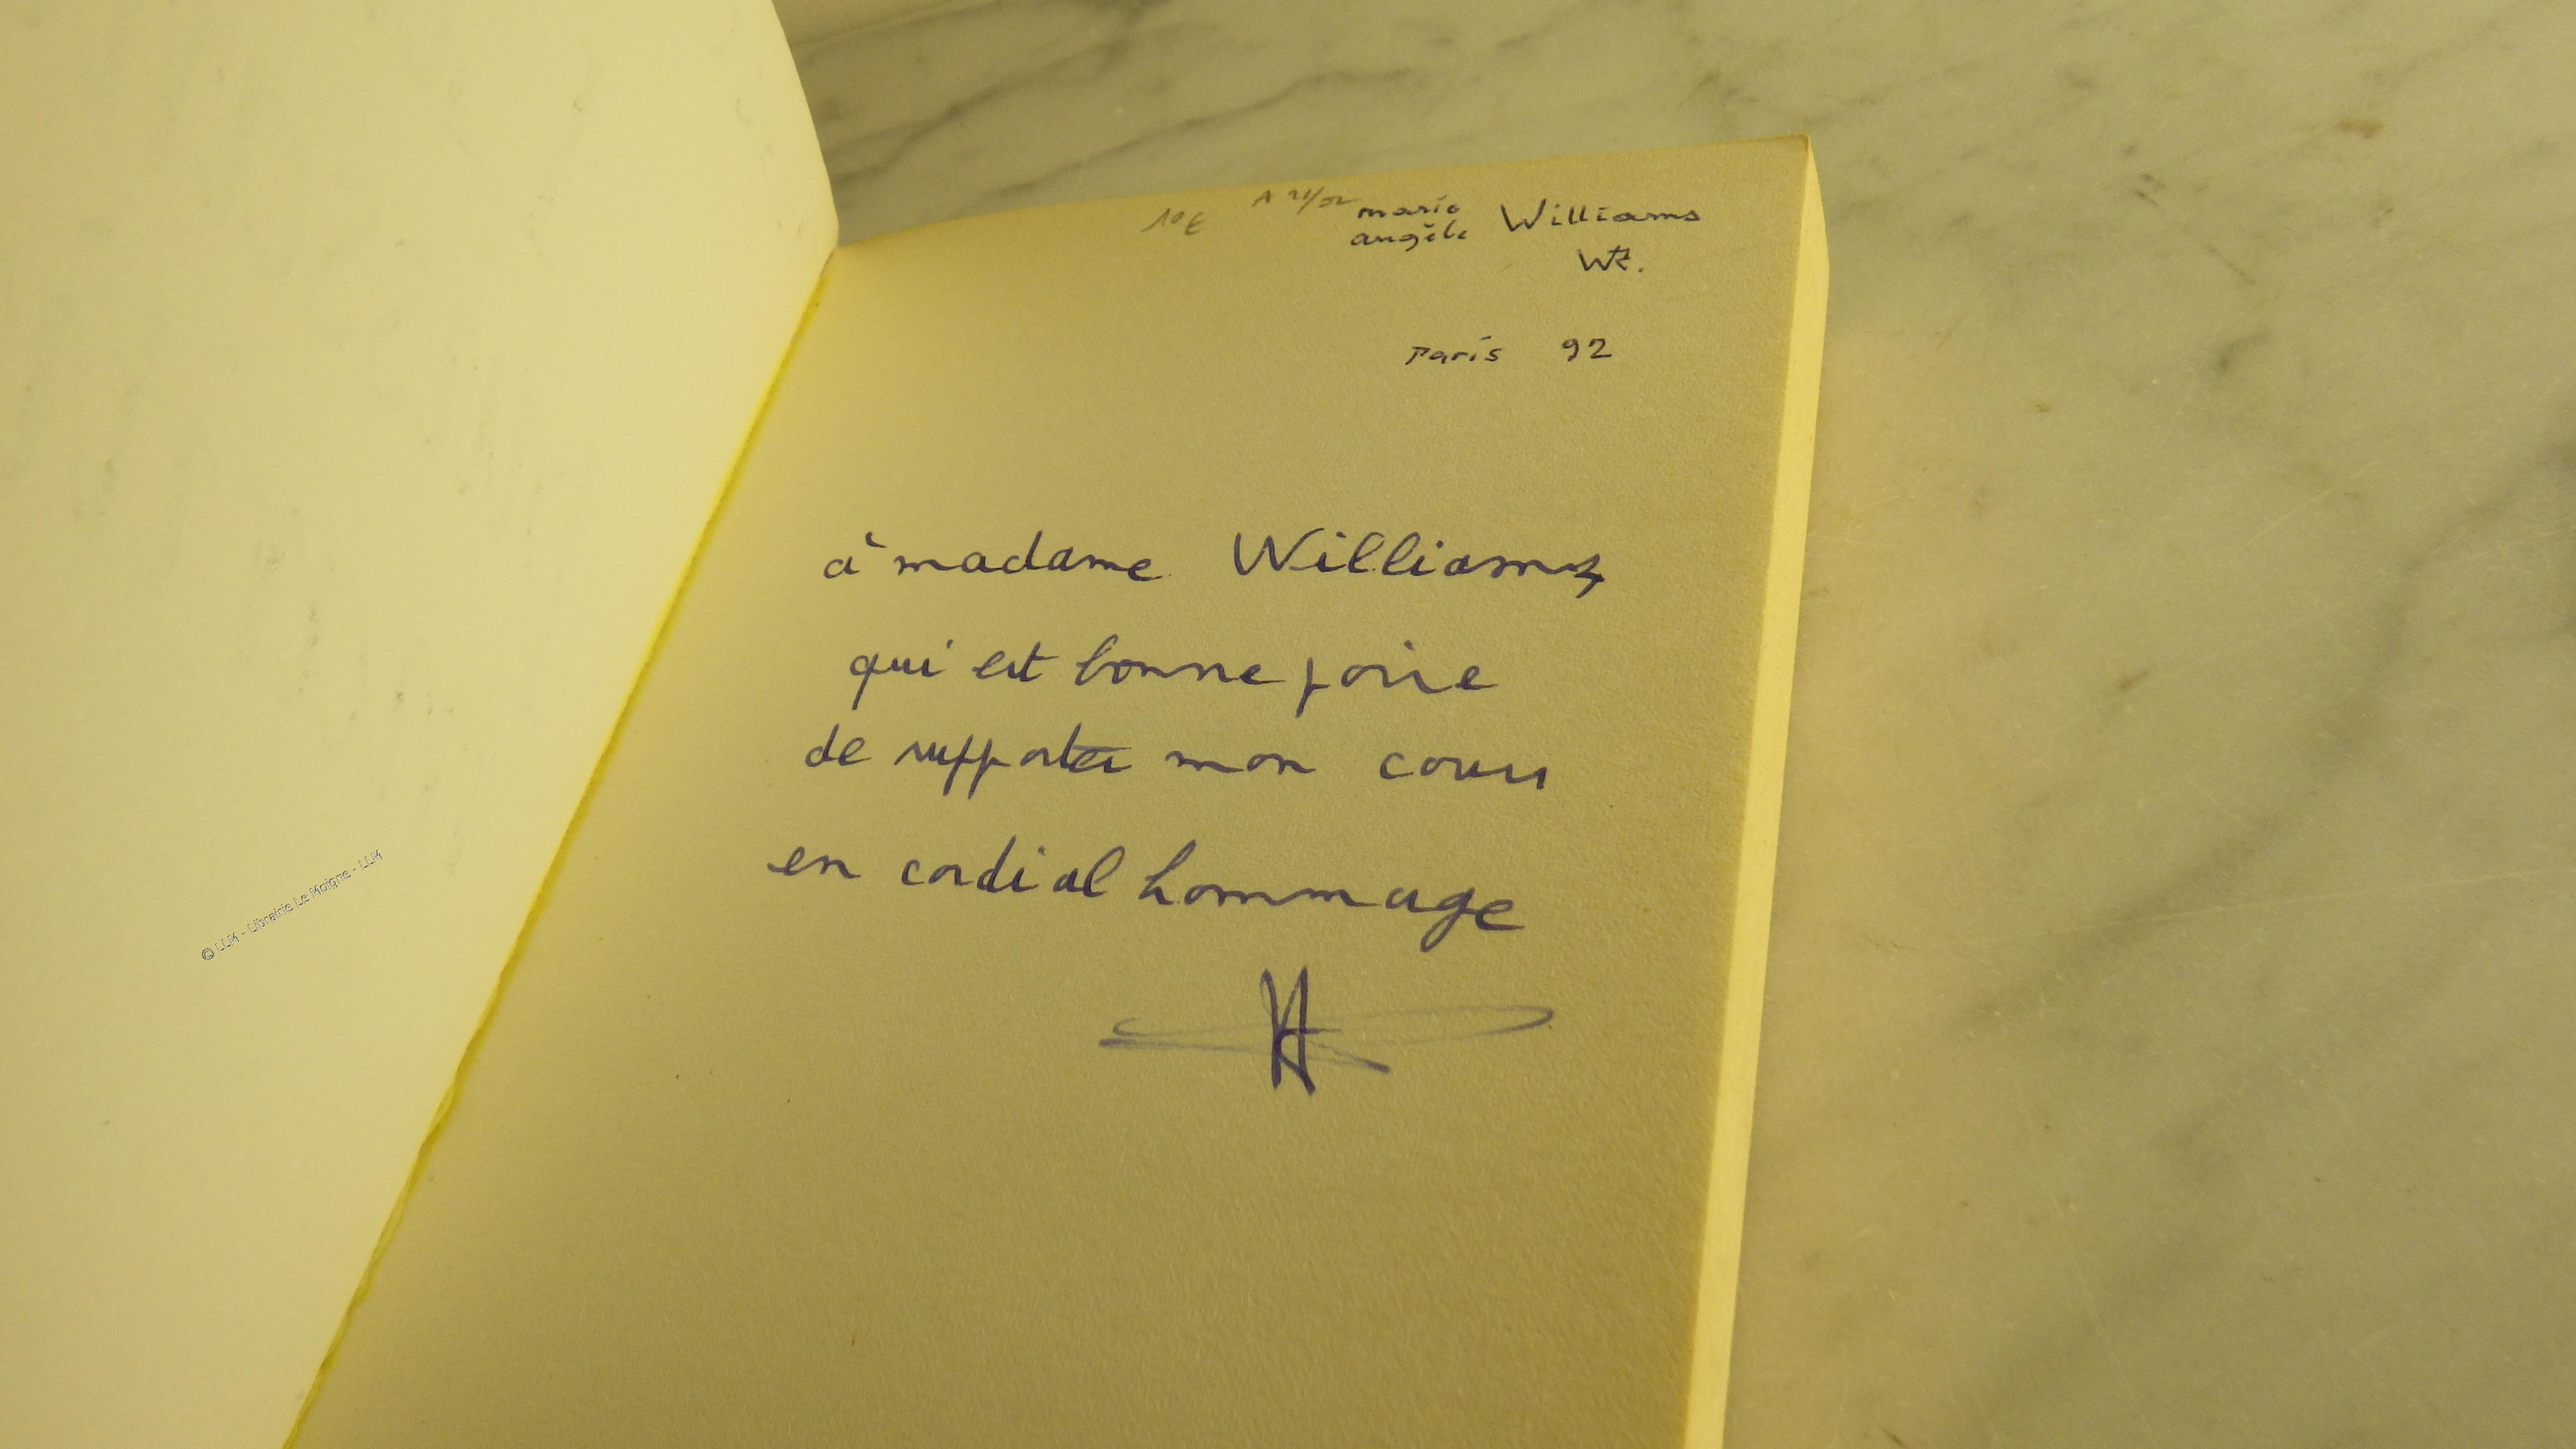 10€
marie Williams
angèle
Paris 92
à madame Williams
qui est bonne poire
de supporter mon cours
en cordial hommage
© LLM - Librairie Le Moigne - LLM